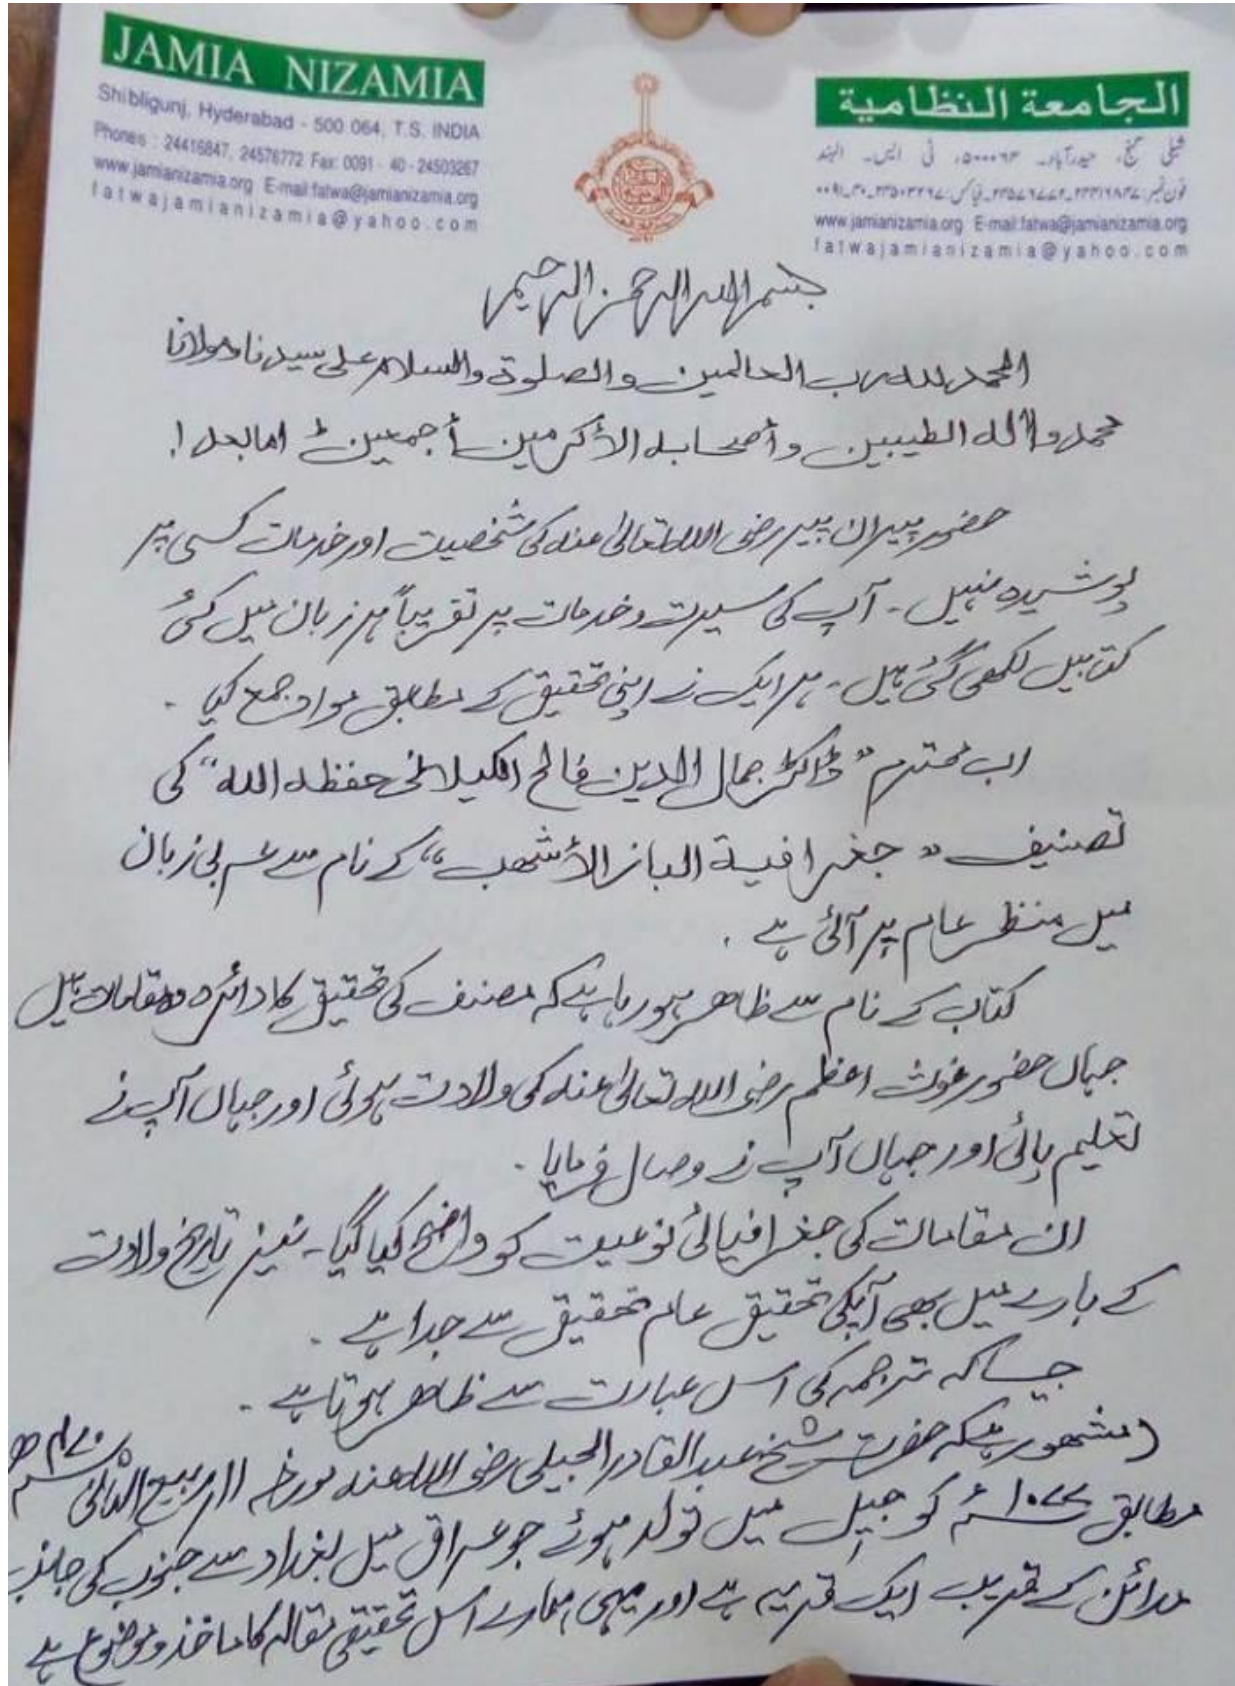 JAMIA NIZAMIA
Shibligunj, Hyderabad - 500 064, T.S. INDIA
Phones : 24416847, 24576772 Fax: 0091 - 40 - 24503267
www.jamianizamia.org E-mail:fatwa@jamianizamia.org
fatwajamianizamia@yahoo.com
الجامعة النظامية
شبلی گنج، حیدرآباد۔ ۵۰۰۰۶۴، ٹی۔ ایس۔ الہند
www.jamianizamia.org E-mail:fatwa@jamianizamia.org
fatwajamianizamia@yahoo.com
بسم الله الرحمن الرحیم
الحمد لله رب العالمين والصلوة والسلام على سيدنا ومولانا
محمد وآله الطيبين وأصحابه الأكرمين أجمعين امابعد !
حضور پیران پیر رضی اللہ تعالیٰ عنہ کی شخصیت اور خدمات کسی پر
پوشیدہ نہیں ۔ آپ کی سیرت و خدمات پر تقریباً ہر زبان میں کئی
کتابیں لکھی گئی ہیں ۔ ہر ایک نے اپنی تحقیق کے مطابق مواد جمع کیا ۔
اب محترم " ڈاکٹر جمال الدین فالح الکیلانی حفظہ اللہ " کی
تصنیف " جغرافية الباز الأشهب " کے نام سے عربی زبان
میں منظر عام پر آئی ہے ۔
کتاب کے نام سے ظاہر ہو رہا ہے کہ مصنف کی تحقیق کا دائرہ وہ مقامات ہیں
جہاں حضور غوث اعظم رضی اللہ تعالیٰ عنہ کی ولادت ہوئی اور جہاں آپ نے
تعلیم پائی اور جہاں آپ نے وصال فرمایا ۔
ان مقامات کی جغرافیائی نوعیت کو واضح کیا گیا ۔ نیز تاریخ ولادت
کے بارے میں بھی آپکی تحقیق عام تحقیق سے جدا ہے ۔
جیسا کہ ترجمہ کی اس عبارت سے ظاہر ہوتا ہے ۔
( مشہور ہیکہ حضرت شیخ عبد القادر الجیلی رضی اللہ عنہ مورخہ ۱۱ ربیع الثانی ۴۷۰ھ
مطابق ۱۰۷۷ء کو جیل میں تولد ہوئے جو عراق میں بغداد سے جنوب کی جانب
مدائن کے قریب ایک قریہ ہے اور یہی ہمارے اس تحقیقی مقالہ کا ماخذ و موضوع ہے